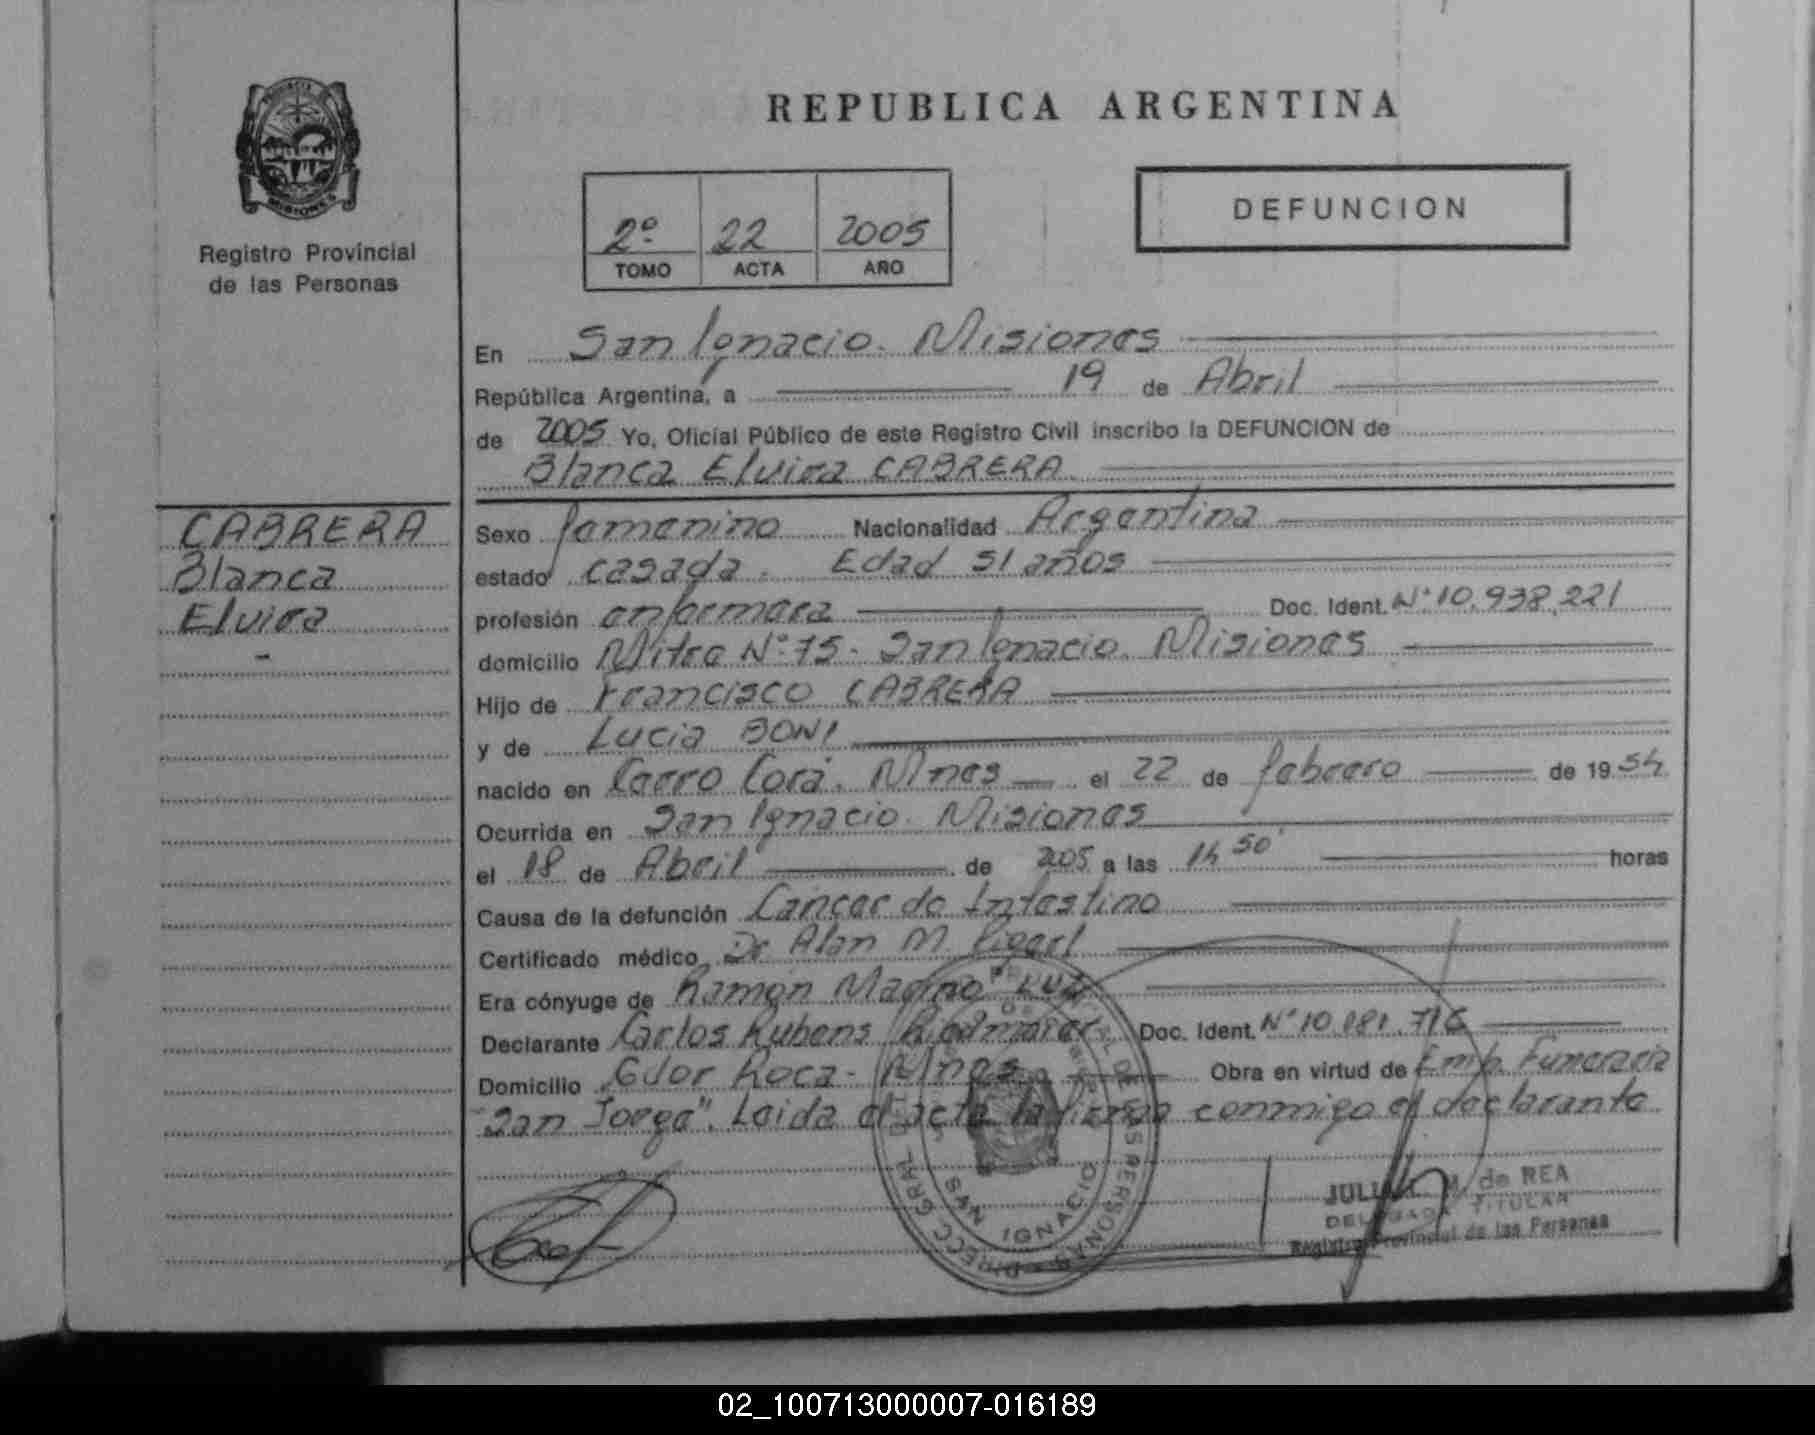 REPUBLICA ARGENTINA
PROVINCIA
MISIONES
Registro Provincial
de las Personas
2º 22 2005
TOMO ACTA AÑO
DEFUNCION
En San Ignacio. Misiones
República Argentina, a 19 de Abril
de 2005 Yo, Oficial Público de este Registro Civil inscribo la DEFUNCION de
Blanca Elvira CABRERA
CABRERA
Blanca
Elvira
Sexo femenino Nacionalidad Argentina
estado casada. Edad 51 años
profesión enfermera Doc. Ident. Nº 10.938.221
domicilio Mitre Nº 75. San Ignacio. Misiones
Hijo de Francisco CABRERA
y de Lucia BONI
nacido en Cerro Corá. Mnes el 22 de febrero de 1954
Ocurrida en San Ignacio. Misiones
el 18 de Abril de 2005 a las 14 50' horas
Causa de la defunción Cáncer de Intestino
Certificado médico Dr Alan M.
Era cónyuge de Ramón Marino
Declarante Carlos Rubens Doc. Ident. Nº 10.181.716
Domicilio Gdor Roca - Mnes Obra en virtud de Emp. Funeraria
"San Jorge". Leida el acta la firma conmigo el declarante
SAN IGNACIO
de REA
DELEGADA TITULAR
Registro Provincial de las Personas
02_100713000007-016189